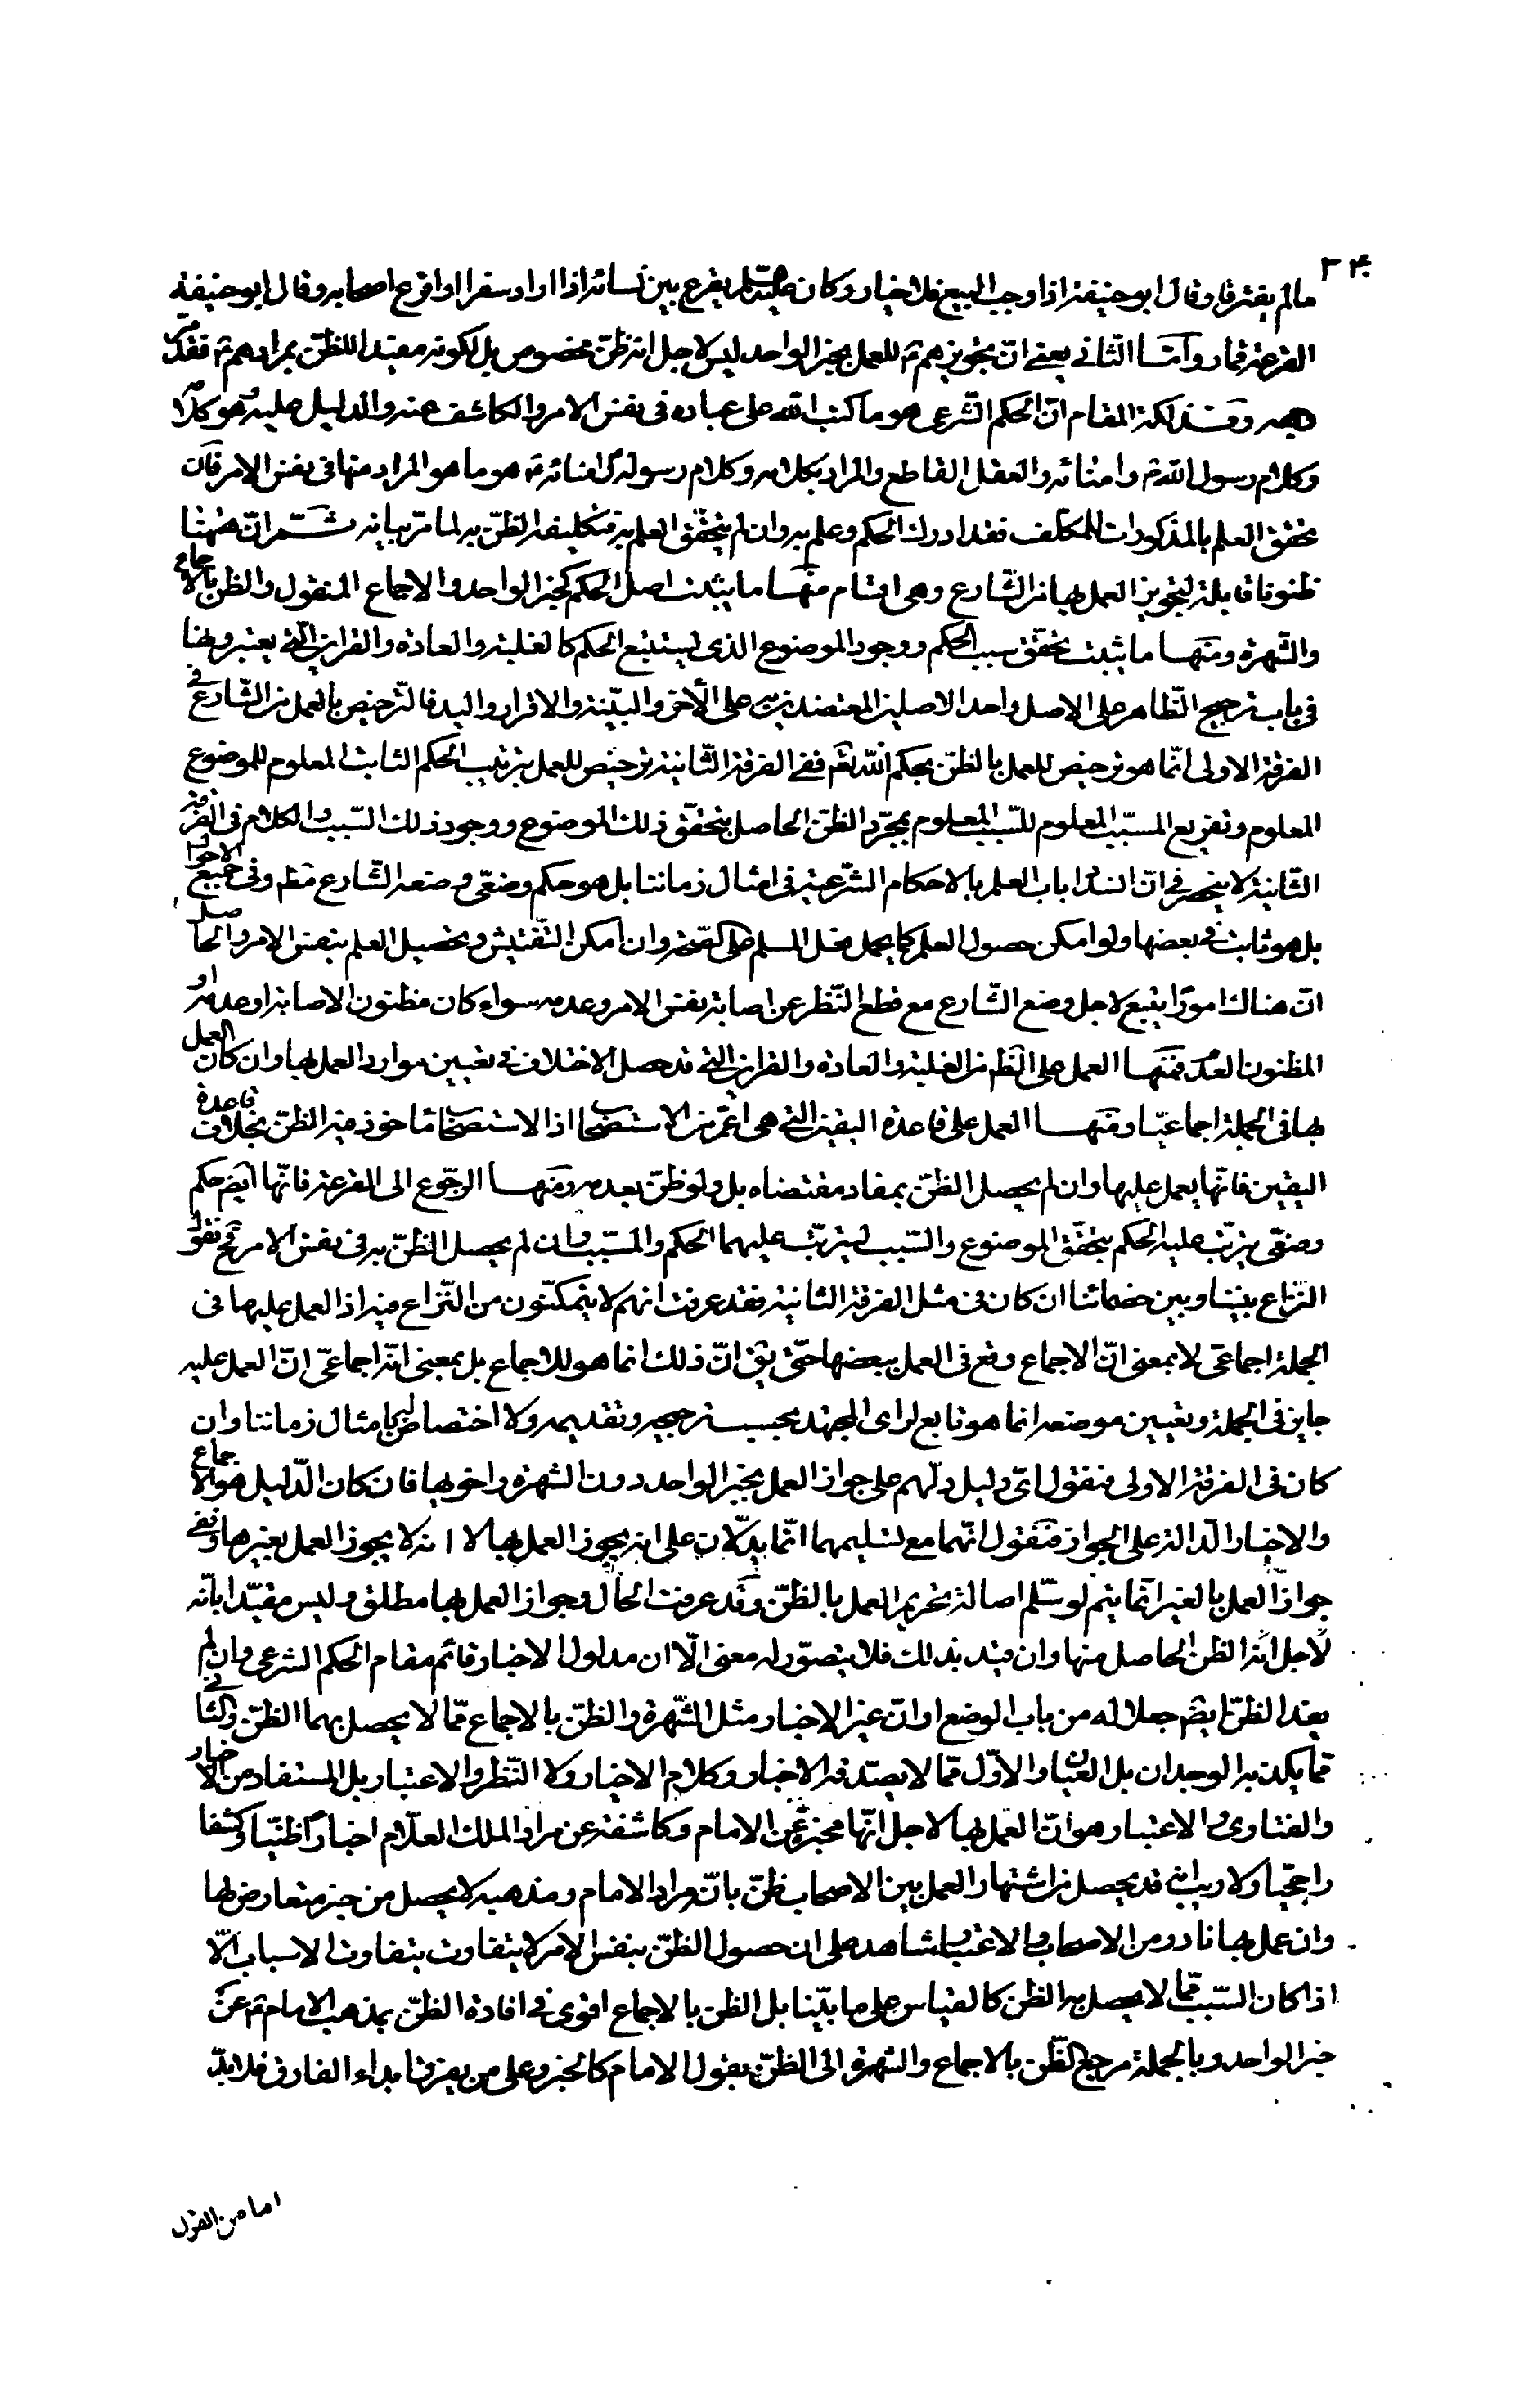 ٢٤٠
ما لم يفترقا وقال ابو حنيفة اذا وجب البيع فلا خيار وكان يقرع بين نسائه اذا اراد سفرا او اقرع اصحابه وقال ابو حنيفة
القرعة قمار وامّا الثّاني يعني انّ تجويزهم للعمل بخبر الواحد ليس لاجل انه ظنّ مخصوص بل لكونه مفيدا للظنّ بمرادهم فقد مرّ
وفذلكة المقام انّ الحكم الشّرعي هو ما كتب الله على عباده في نفس الامر والكاشف عنه والدليل عليه هو كلامه
وكلام رسول الله وامنائه والعقل القاطع والمراد بكلامه وكلام رسوله وامنائه هو ما هو المراد منها في نفس الامر فان
تحقق العلم بالمذكورات للمكلف فقد ادرك الحكم وعلم به وان لم يتحقّق العلم به فتكليفه الظنّ به لما مرّ بيانه ثمّ انّ ههنا
ظنونا قابلة لتجويز العمل بها من الشّارع وهى اقسام منها ما يثبت اصل الحكم كخبر الواحد والاجماع المنقول والظن بالاجماع
والشّهرة ومنها ما يثبت تحقّق سبب الحكم ووجود الموضوع الذى يستتبع الحكم كالغلبة والعادة والقراين الّتي يعتبرونها
في باب ترجيح الظّاهر على الاصل واحد الاصلين المعتضد به على الآخر والبيّنة والاقرار واليد فالتّرخيص بالعمل من الشّارع في
الفرقة الاولى انّما هو ترخيص للعمل بالظنّ بحكم الله تعم ففي الفرقة الثّانية ترخيص للعمل بترتيب الحكم الثابت المعلوم للموضوع
المعلوم وتفريع المسبّب المعلوم للسّبب المعلوم بمجرّد الظنّ الحاصل بتحقّق ذلك الموضوع ووجود ذلك السّبب والكلام في الفرقة
الثّانية لا ينحصر في انّ انسداد باب العلم بالاحكام الشّرعية في امثال زماننا بل هو حكم وضعى وضعه الشّارع مطم وفى جميع الاحوال
بل هو ثابت في بعضها ولو امكن حصول العلم كما يحمل فعل المسلم على الصّحة وان امكن التّفتيش وتحصيل العلم بنفس الامر والحاصل
انّ هناك امورًا يتبع لاجل وضع الشّارع مع قطع النّظر عن اصابة نفس الامر وعدمه سواء كان مظنون الاصابة او عدمه او
المظنون العدم فمنها العمل على الظّم من الغلبة والعادة والقراين التي قد حصل الاختلاف في تعيين موارد العمل بها وان كان العمل
بها في الجملة اجماعيّا ومنها العمل على قاعدة اليقين التي هى اعمّ من الاستصحاب اذ الاستصحاب مأخوذ فيه الظنّ بخلاف قاعدة
اليقين فانّها يعمل عليها وان لم يحصل الظنّ بمفاد مقتضاه بل ولو ظنّ بعدمه ومنها الرجّوع الى القرعة فانّها ايضم حكم
وضعّى يترتّب عليه الحكم بتحقّق الموضوع والسّبب ليترتّب عليهما الحكم والمسبّب وان لم يحصل الظنّ به في نفس الامر فح نقول
النّزاع بيننا وبين خصمائنا ان كان في مثل الفرقة الثانية فقد عرفت انهم لا يتمكنّون من النّزاع فيه اذ العمل عليها في
الجملة اجماعى لا بمعنى انّ الاجماع وقع في العمل ببعضها حتّى يق انّ ذلك انما هو للاجماع بل بمعنى انّه اجماعى انّ العمل عليه
جايز في الجملة وتعيين موضعه انما هو تابع لراى المجتهد بحسب ترجيحه وتقديمه ولا اختصاص لها بامثال زماننا وان
كان في الفرقة الاولى فنقول اىّ دليل دلّهم على جواز العمل بخبر الواحد دون الشهرة واخويها فان كان الدّليل هو الاجماع
والاخبار الدّالة على الجواز فنقول انّهما مع تسليمهما انّما يدلّان على انه يجوز العمل بها لا انه لا يجوز العمل بغيرها ونفى
جواز العمل بالغير انّما يتم لو سلّم اصالة تحريم العمل بالظنّ وقد عرفت الحال وجواز العمل بها مطلق وليس مقيّدا بانّه
لاجل انّه الظن الحاصل منها وان قيد بذلك فلا يتصوّر له معنى الّا ان مدلول الاخبار قائم مقام الحكم الشرعى وان لم
يفد الظنّ ايضم جعلا له من باب الوضع او انّ غير الاخبار مثل الشّهرة والظنّ بالاجماع ممّا لا يحصل بهما الظنّ والثّاني
ممّا يكذبه الوجدان بل العيان والاوّل ممّا لا يصدّقه الاخبار وكلام الاخيار ولا النّظر والاعتبار بل المستفاد من الاخبار
والفتاوى والاعتبار هو انّ العمل بها لاجل انّها مخبرة عن الامام وكاشفة عن مراد الملك العلّام اخبارًا ظنّيا وكشفا
راجحيّا ولا ريب انّه قد يحصل من اشتهار العمل بين الاصحاب ظنّ بانّه مراد الامام ومذهبه لا يحصل من خبر متعارض لها
وان عمل بها نادر من الاصحاب والاعتبار شاهد على ان حصول الظنّ بنفس الامر لا يتفاوت بتفاوت الاسباب الّا
اذا كان السّبب ممّا لا يحصل به الظن كالقياس على ما بيّنا بل الظن بالاجماع اقوى في افادة الظنّ بمذهب الامام عن
خبر الواحد وبالجملة مرجع الظّن بالاجماع والشهرة الى الظنّ بقول الامام كالخبر وعلى من يفرقنا بداء الفارق فلا بدّ
اما من القول